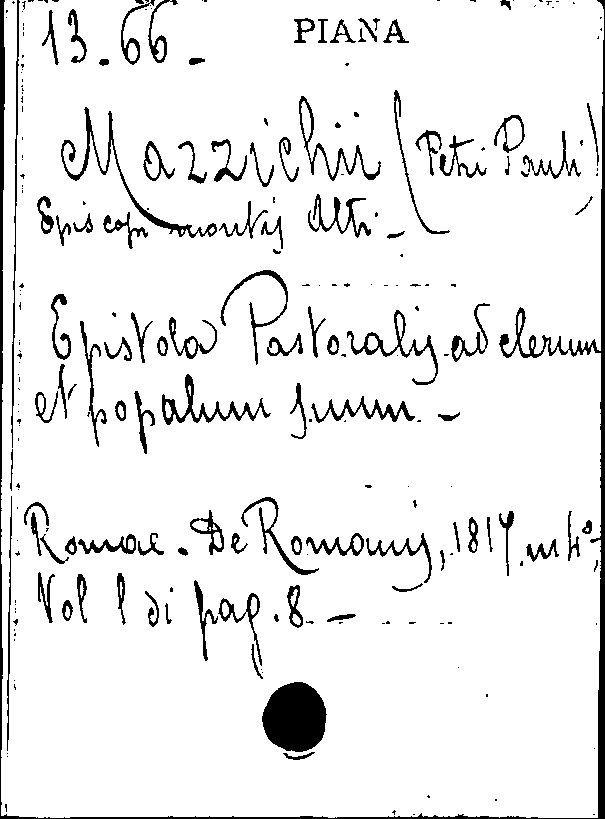 13.66-
PIANA
Mazzichii (Petri Pauli)
Episcopi montis Alti-
Epistola Pastoralis ad clerum
et popalum suum-
Romae. De Romanis, 1817. in 4°;
Vol 1 di pag. 8-